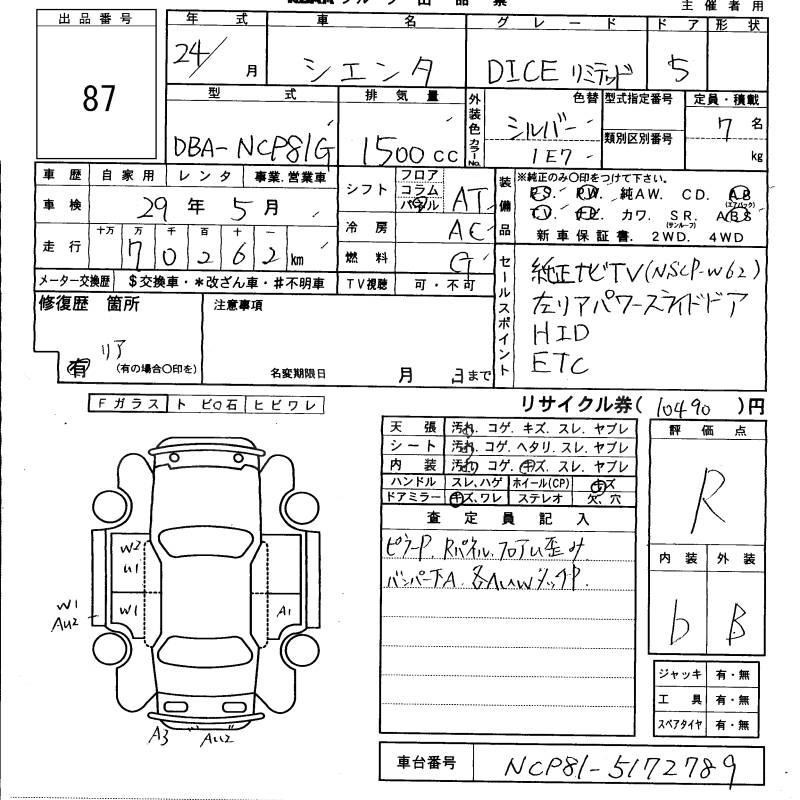 主催者用
出品番号
87
年式 車名 グレード ドア 形状
24/ 月 シエンタ DICE リミテッド 5
型式 排気量 外装色 カラーNo. 色替 型式指定番号 定員・積載
DBA-NCP81G 1500cc シルバー 類別区別番号 7名
1E7 kg
車歴 自家用 レンタ 事業.営業車
シフト フロア コラム パネル AT
装備品 ※純正のみ〇印をつけて下さい。
PS. PW. 純AW. CD. AB(エアバック)
TV. ナビ. カワ. SR.(サンルーフ) ABS
新車保証書. 2WD. 4WD
車検 29年5月
冷房 AC
走行 十万 万 千 百 十 一
70262km
燃料 G
メーター交換歴 $交換車・*改ざん車・#不明車
TV視聴 可・不可
セールスポイント
純正ナビTV(NSCP-W62)
左リアパワースライドドア
HID
ETC
修復歴 箇所 注意事項
リア
有 (有の場合〇印を)
名変期限日 月 日まで
リサイクル券(10490)円
Fガラス トビ石 ヒビワレ
天張 汚れ. コゲ. キズ. スレ. ヤブレ
シート 汚れ. コゲ. ヘタリ. スレ. ヤブレ
内装 汚れ. コゲ. キズ. スレ. ヤブレ
ハンドル スレ,ハゲ ホイール(CP) キズ
ドアミラー キズ,ワレ ステレオ 欠.穴
評価点
R
内装 外装
b B
査定員記入
ピラーP. Rパネル.フロアU歪み
バンパー下A. 各AUWタッチP.
W2
U1
W1
W1
AU2
A1
A3 AU2
ジャッキ 有・無
工具 有・無
スペアタイヤ 有・無
車台番号 NCP81-5172789